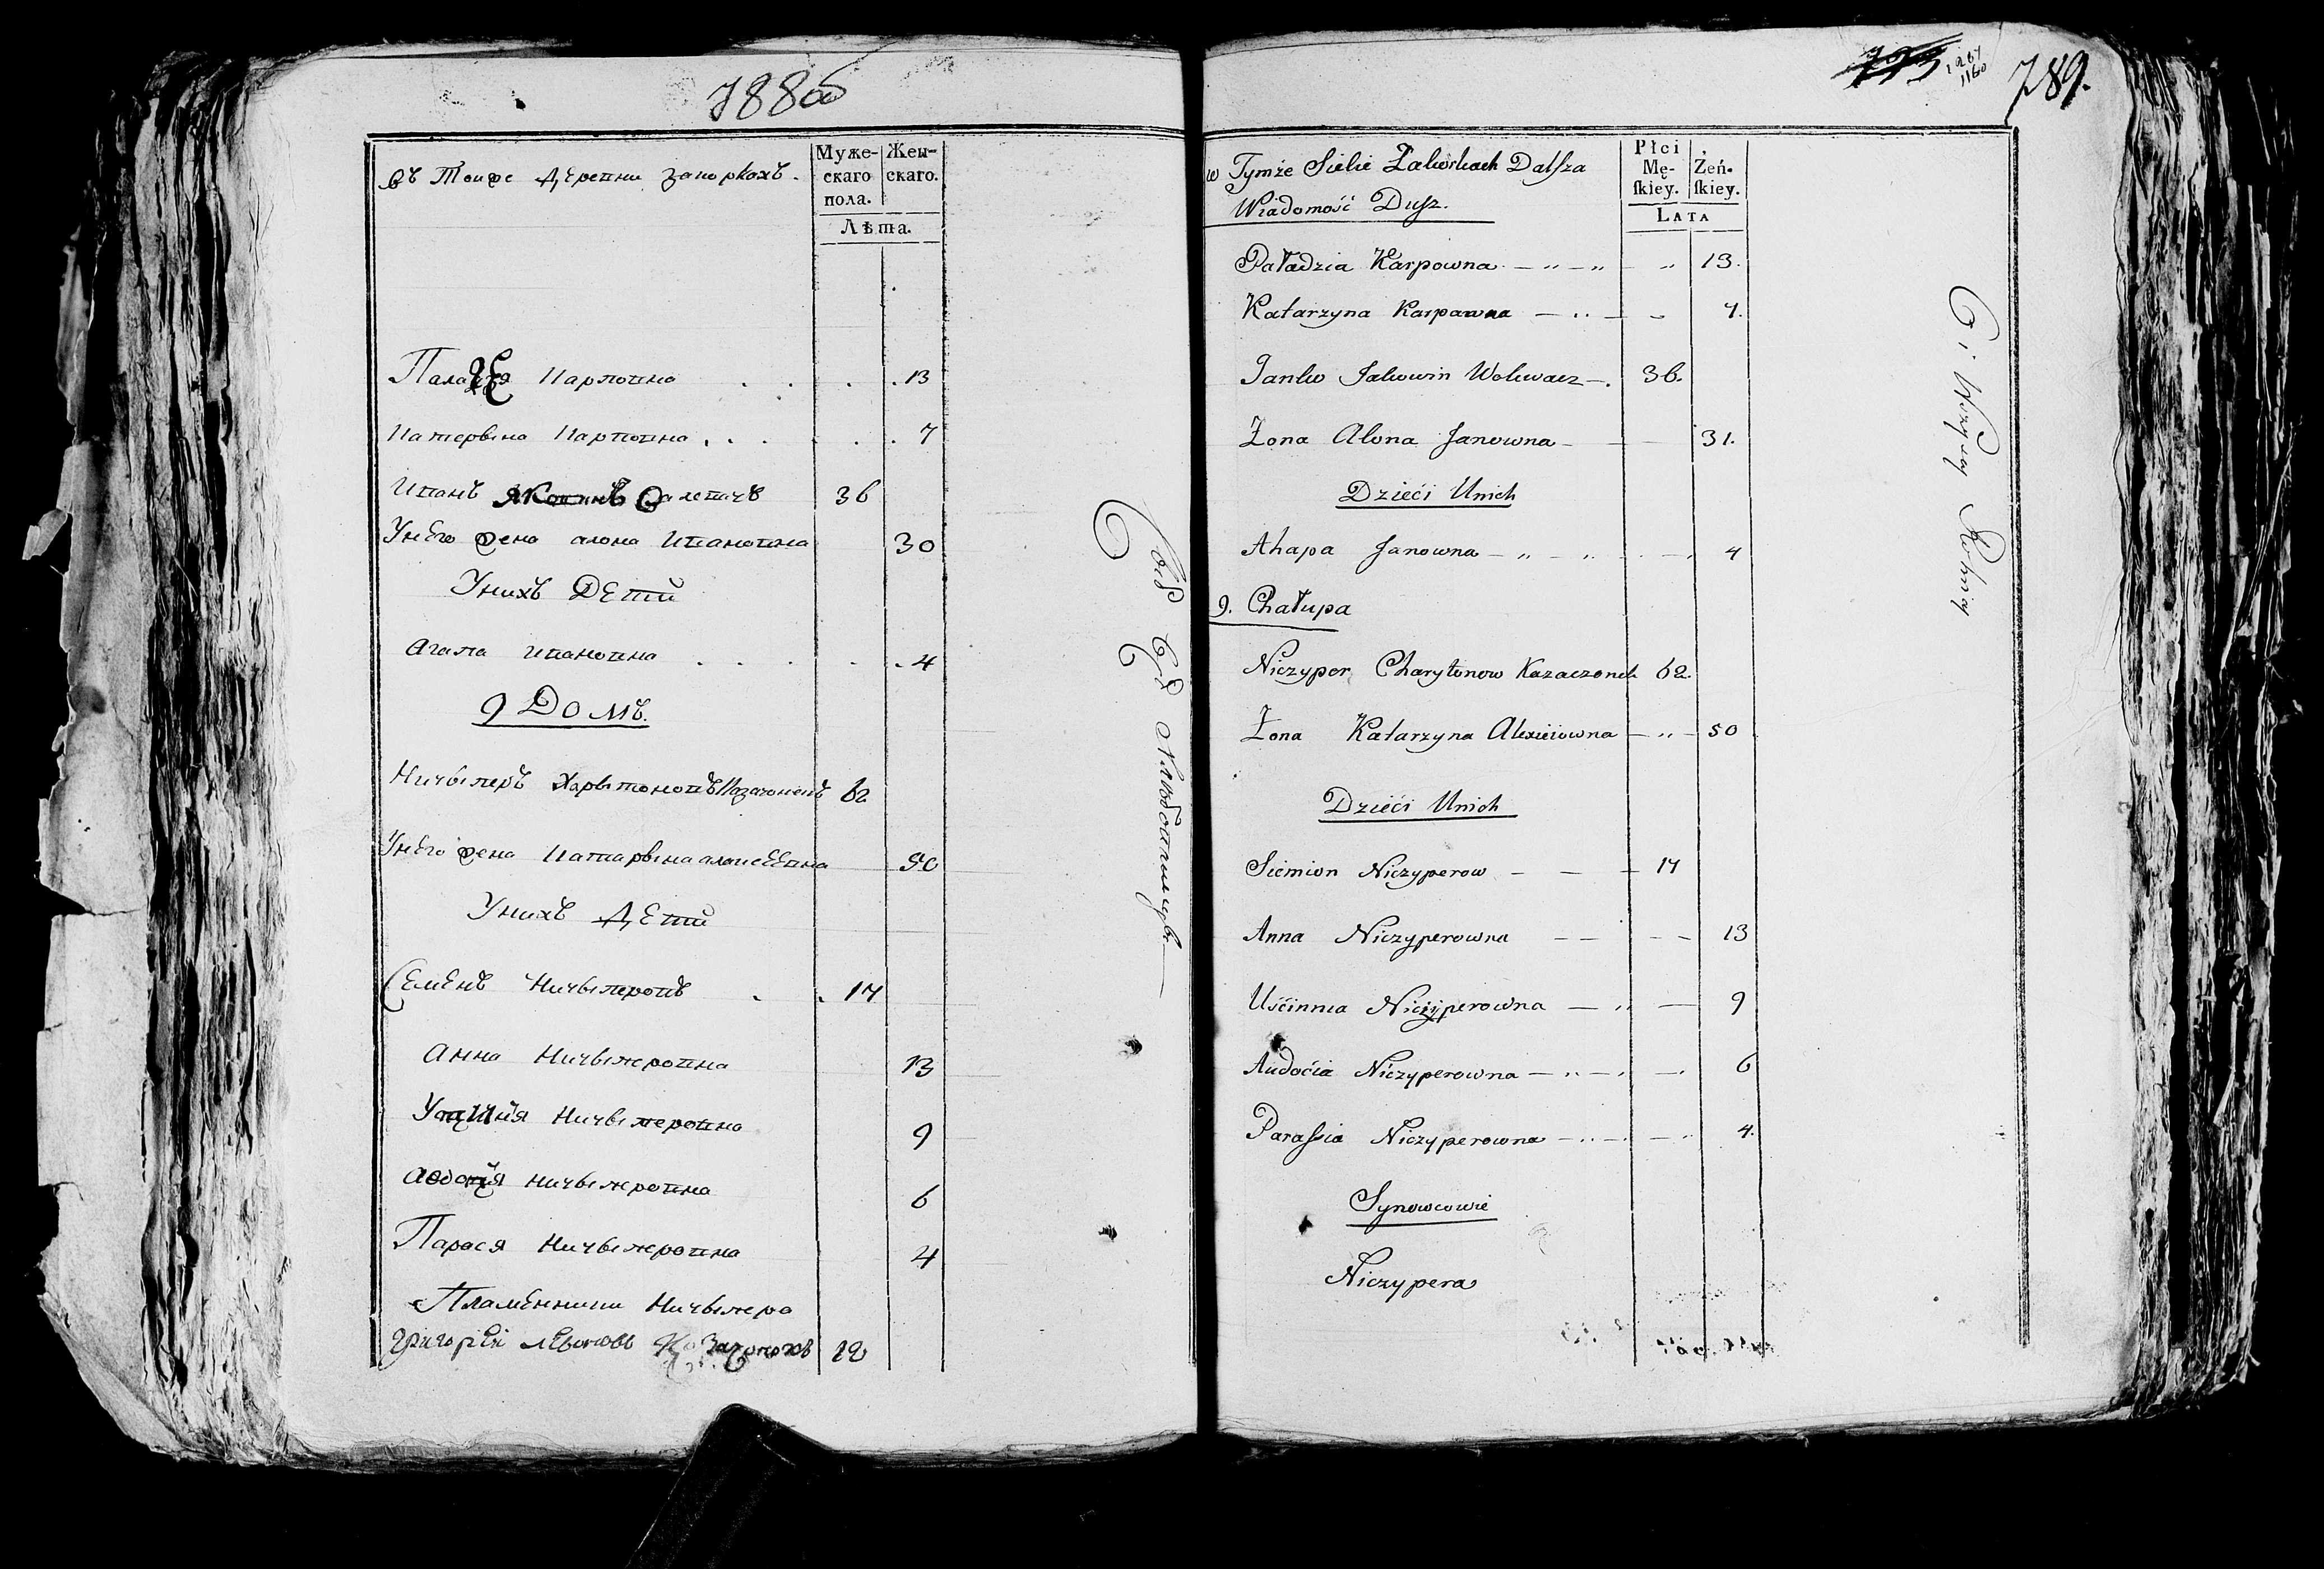 788об
въ Тойже Деревни Заворкахъ.
Муже- Жен-
скаго скаго.
пола.
Лѣта.
Карповна 13
Катерына Карповна 7
Иванъ Яковинъ 36
Унего жена алона Ивановна 30
Унихъ Дети
Агапа ивановна 4
9 Домъ.
Ничыперъ Харытоновъ Казачонокъ 62
Унего жена Катарына алексеевна 50
Унихъ Дети
Семенъ Ничыперовъ 17
анна Ничыперовна 13
Ничыперовна 9
Ничыперовна 6
Парася Ничыперовна 4
Пламенники Ничыпера
Григорей Левоновъ 12
789.
w Tymże Sielie Zaworkach Dalſza
Wiadomość Duſz.
Płci
Mę- Żeń-
ſkiey. ſkiey.
LATA
Paładzia Karpowna 13.
Katarzyna Karpowna 7.
Janko Jakowin 36.
Żona Alona Janowna 31.
Dzieći Unich
Ahapa Janowna 4
9. Chałupa
Niczyper Charytonow Kazaczonek 62.
Żona Katarzyna Alexieiowna 50
Dzieći Unich
Siemion Niczyperow 17
Anna Niczyperowna 13
Uścinnia Niczyperowna 9
Audocia Niczyperowna 6
Paraſsia Niczyperowna 4.
Synowcowie
Niczypera